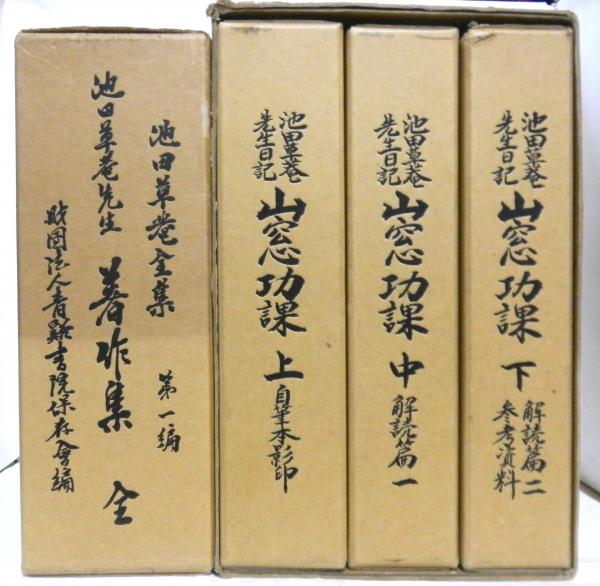 池田草菴全集 第一編
池田草菴先生 著作集 全
財団法人青谿書院保存會編
池田草菴
先生日記
山窓功課 上 自筆本影印
池田草菴
先生日記
山窓功課 中 解読篇一
池田草菴
先生日記
山窓功課 下 解読篇二
参考資料